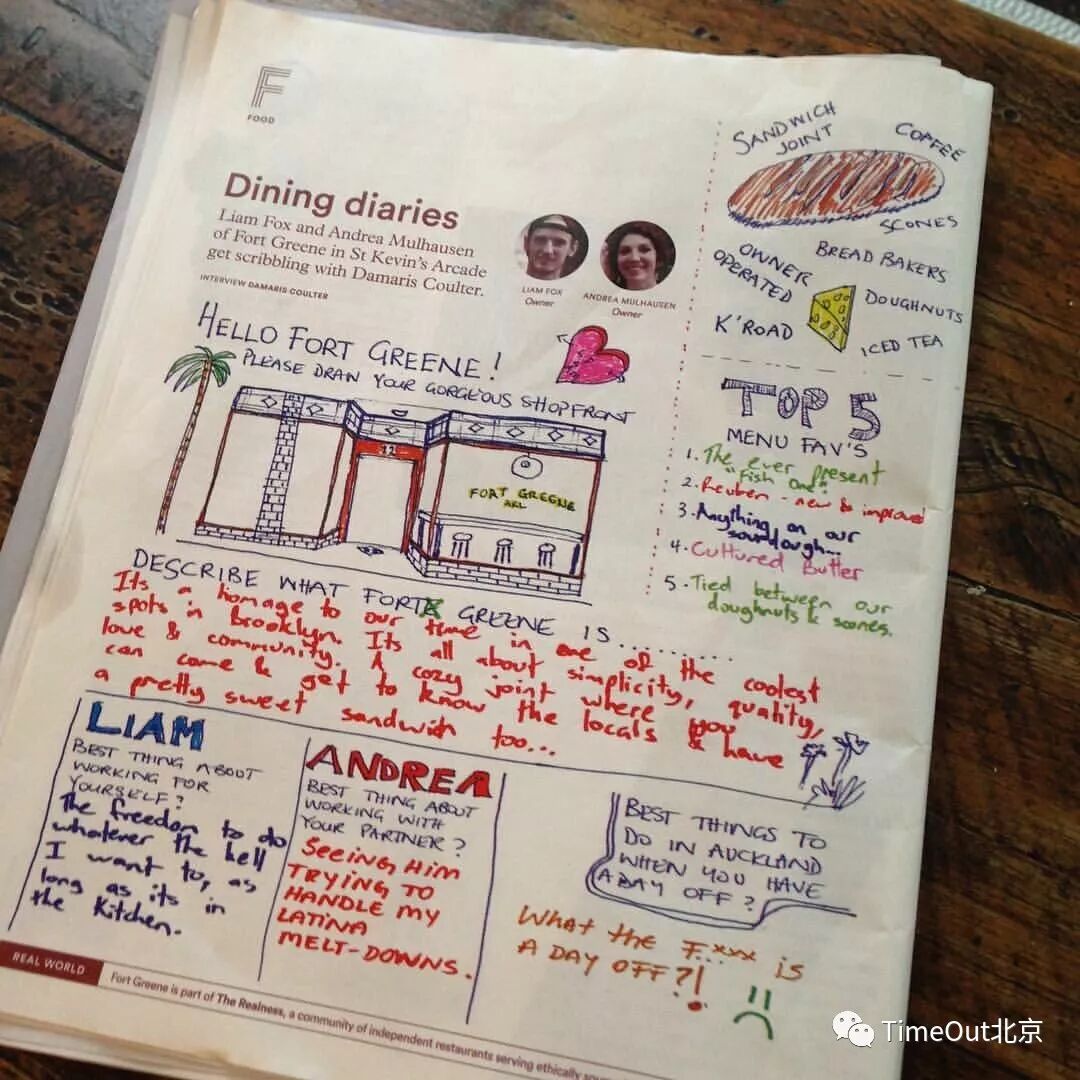 F
FOOD
Dining diaries
Liam Fox and Andrea Mulhausen
of Fort Greene in St Kevin's Arcade
get scribbling with Damaris Coulter.
INTERVIEW DAMARIS COULTER
LIAM FOX
Owner
ANDREA MULHAUSEN
Owner
HELLO FORT GREENE!
PLEASE DRAW YOUR GORGEOUS SHOPFRONT
12
FORT GREENE
AKL
DESCRIBE WHAT FORT GREENE IS..........
Its a homage to our time in one of the coolest
spots in Brooklyn. Its all about simplicity, quality,
love & community. A cozy joint where you
can come & get to know the locals & have
a pretty sweet sandwich too...
SANDWICH
JOINT
COFFEE
SCONES
BREAD BAKERS
OWNER
OPERATED
DOUGHNUTS
K'ROAD
ICED TEA
TOP 5
MENU FAV'S
1. The ever present
"Fish One"
2. Reuben - new & improved
3. Anything on our
sourdough...
4. Cultured Butter
5. Tied between our
doughnuts & scones.
LIAM
BEST THING ABOUT
WORKING FOR
YOURSELF?
The freedom to do
whatever the hell
I want to, as
long as its in
the kitchen.
ANDREA
BEST THING ABOUT
WORKING WITH
YOUR PARTNER?
SEEING HIM
TRYING TO
HANDLE MY
LATINA
MELT-DOWNS.
BEST THINGS TO
DO IN AUCKLAND
WHEN YOU HAVE
A DAY OFF?
What the F...xxx is
A DAY OFF?!
REAL WORLD
Fort Greene is part of The Realness, a community of independent restaurants serving ethically
TimeOut北京